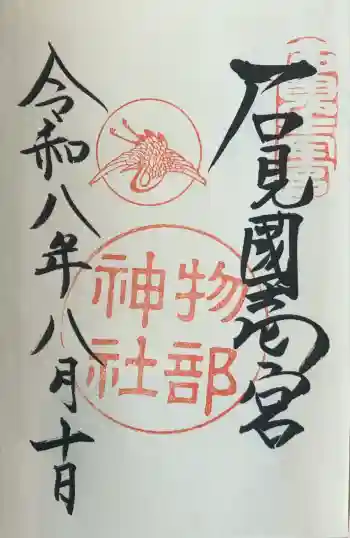 石見國壱宮
物部
神社
令和八年八月十日